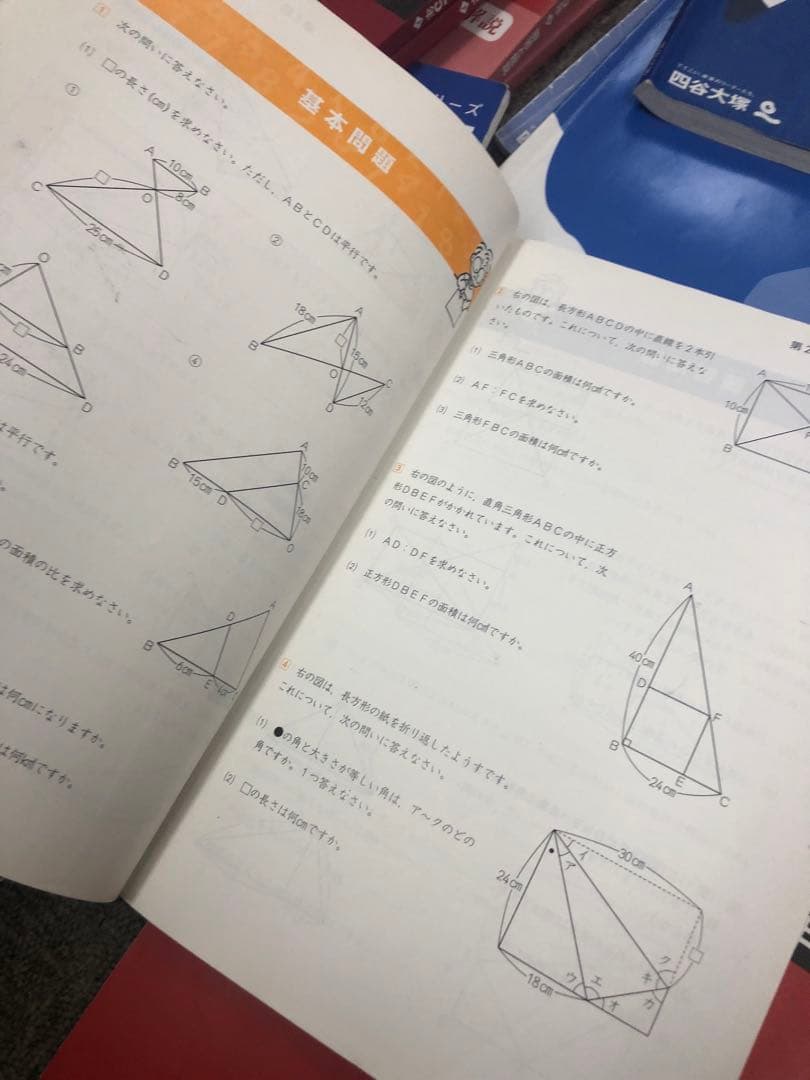 解説
四谷大塚
基本問題
1 次の問いに答えなさい。
(1) □の長さ(cm)を求めなさい。ただし、ABとCDは平行です。
①
A
10cm
B
C
O
8cm
25cm
D
②
A
18cm
B
□
15cm
O
C
D
12cm
O
□
B
24cm
D
④
A
10cm
B
C
15cm
D
18cm
□
O
は平行です。
の面積の比を求めなさい。
A
D
B
6cm
E
は何cmになりますか。
は何cm²ですか。
右の図は、長方形ABCDの中に直線を2本引
いたものです。これについて、次の問いに答えな
さい。
(1) 三角形ABCの面積は何cm²ですか。
(2) AF:FCを求めなさい。
(3) 三角形FBCの面積は何cm²ですか。
A
10cm
B
F
3 右の図のように、直角三角形ABCの中に正方
形DBEFがかかれています。これについて、次
の問いに答えなさい。
(1) AD:DFを求めなさい。
(2) 正方形DBEFの面積は何cm²ですか。
A
40cm
D
F
B
E
24cm
C
4 右の図は、長方形の紙を折り返したようすです。
これについて、次の問いに答えなさい。
(1) ●の角と大きさが等しい角は、ア〜クのどの
角ですか。1つ答えなさい。
(2) □の長さは何cmですか。
30cm
イ
ア
24cm
ク
□
キ
カ
ウ
エ
オ
18cm